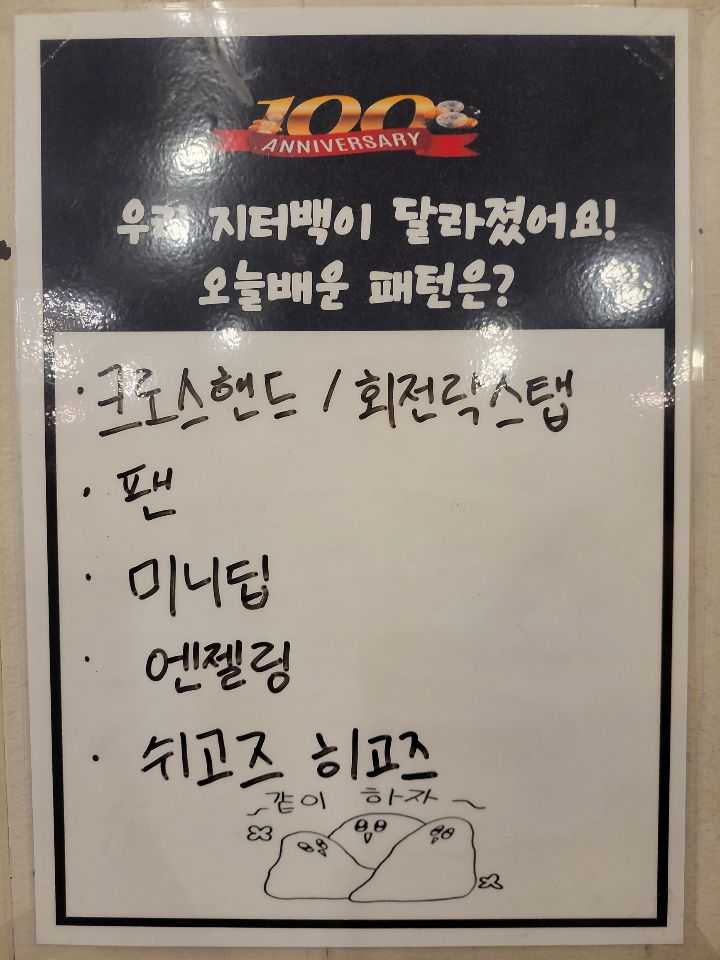 100
ANNIVERSARY
우리 지터백이 달라졌어요!
오늘배운 패턴은?
· 크로스핸드 / 회전락스탭
· 팬
· 미니딥
· 엔젤링
· 쉬고즈 히고즈
~같이 하자~